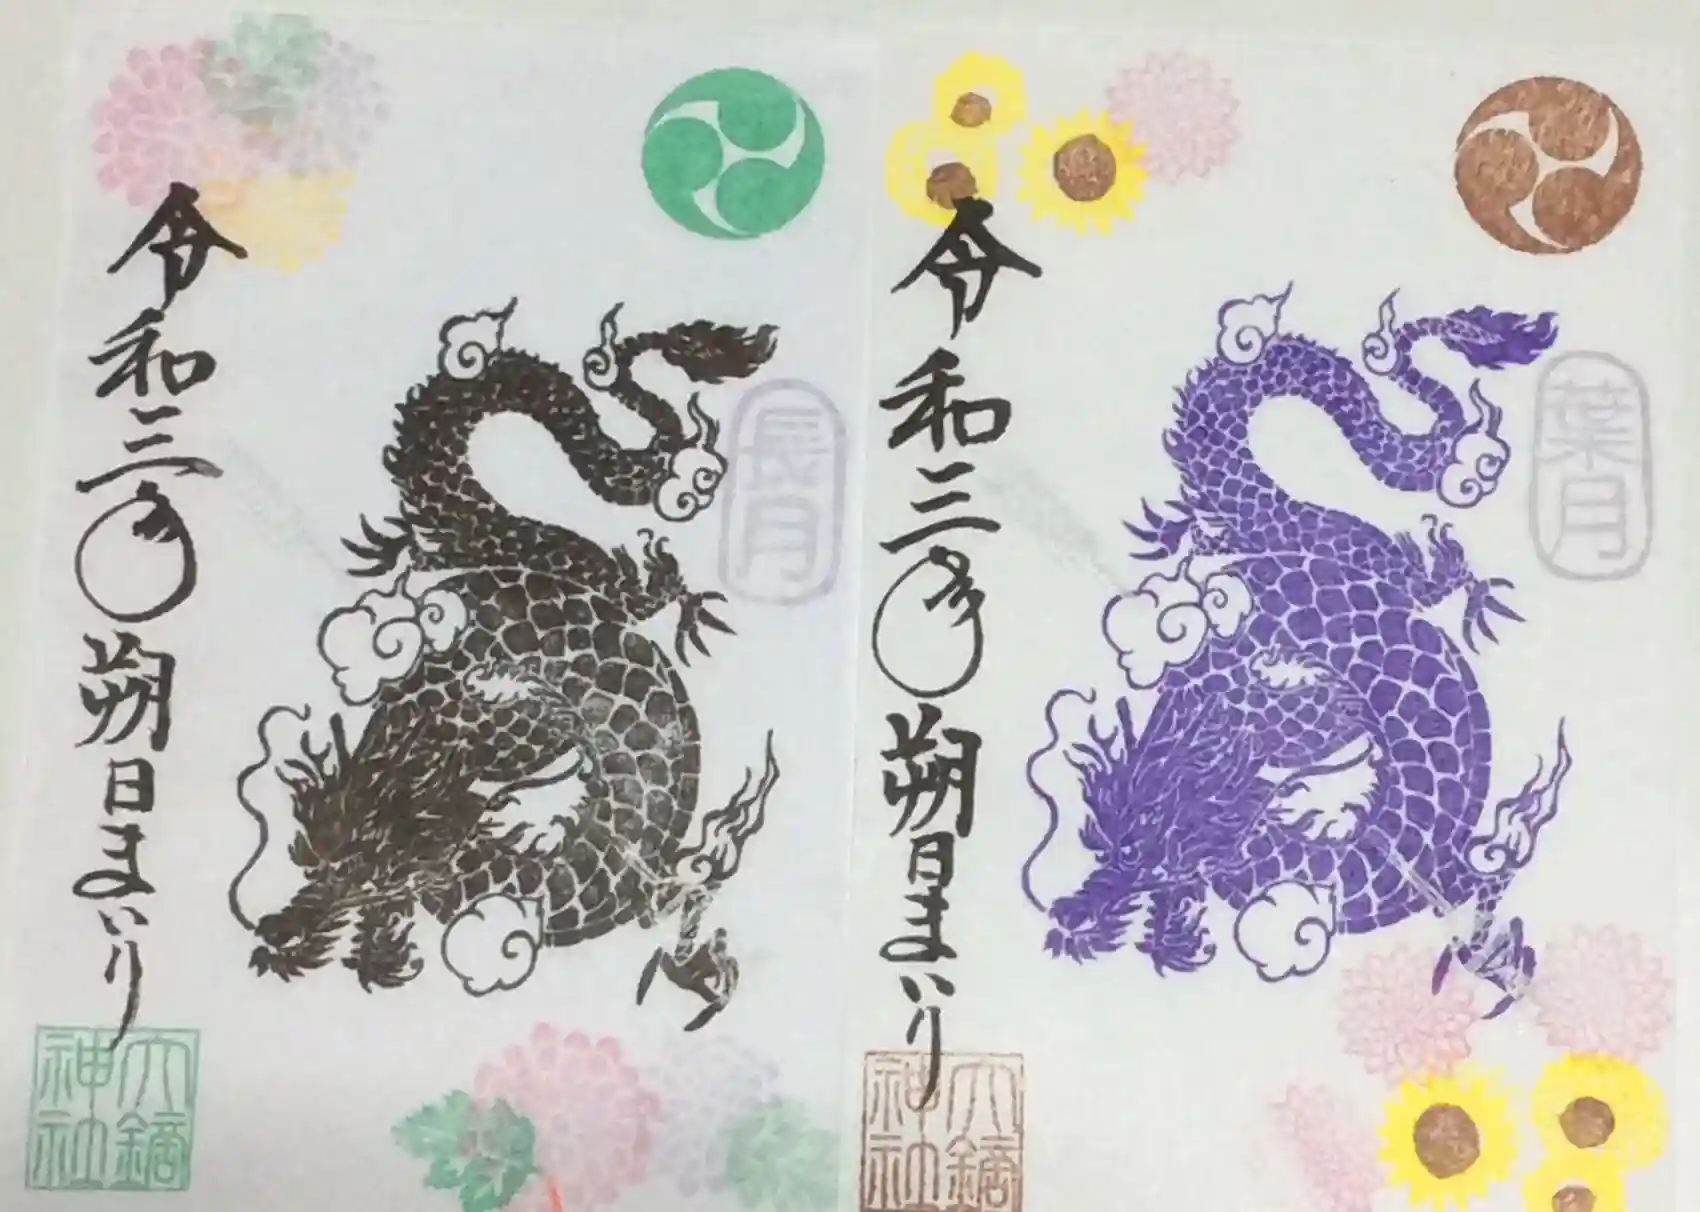 長月
令和三年朔日まいり
大鏑
神社
葉月
令和三年朔日まいり
大鏑
神社